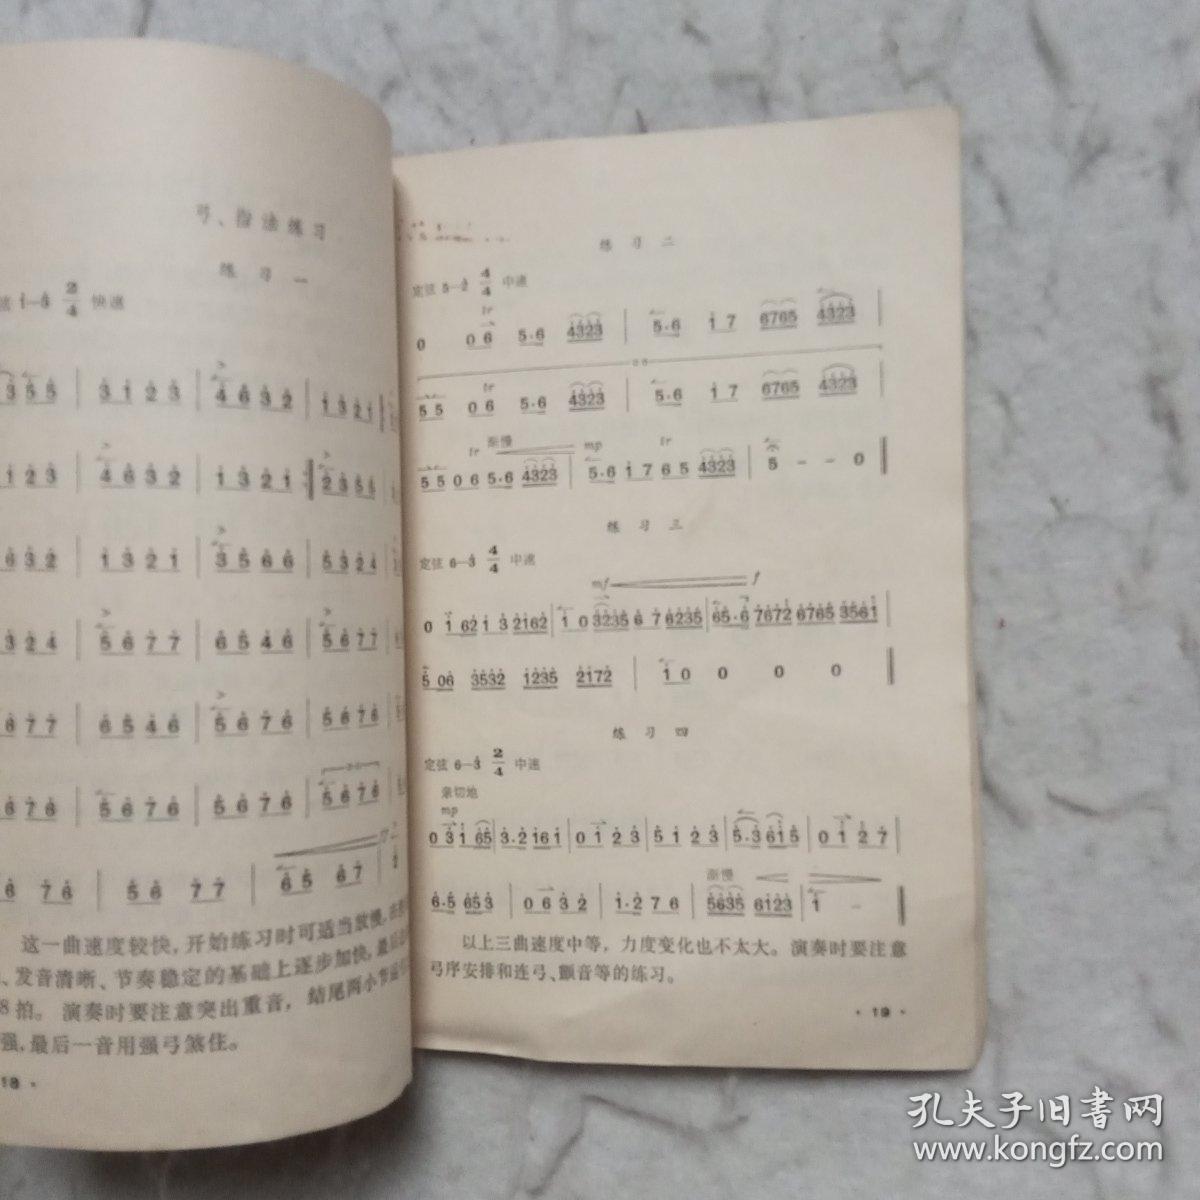 弓、指法练习
练 习 一
弦 1—3 2/4 快速
3 1 2 3 | 4 6 3 2 | 1 3 2 1
1 2 3 | 4 6 3 2 | 1 3 2 1 :‖ 2 3 5 5
6 3 2 | 1 3 2 1 | 3 5 6 6 | 5 3 2 4
3 2 4 | 5 6 7 7 | 6 5 4 6 | 5 6 7 7
6 7 7 | 6 5 4 6 | 5 6 7 6 | 5 6 7 6
6 7 6 | 5 6 7 6 | 5 6 7 6 | 5 6 7 6
6 7 6 | 5 6 7 7 | 6 5 6 7
这一曲速度较快，开始练习时可适当放慢，
、发音清晰、节奏稳定的基础上逐步加快，最后
8拍。演奏时要注意突出重音，结尾两小节
强，最后一音用强弓煞住。
18 ·
练 习 二
定弦 5—2 4/4 中速
tr
0 0 6 5·6 4323 | 5·6 1 7 6765 4323 |
tr
5 5 0 6 5·6 4323 | 5·6 1 7 6765 4323 |
tr 渐慢 mp tr
5 5 0 6 5·6 4323 | 5·6 1 7 6 5 4323 | 5 – – 0 ‖
练 习 三
定弦 6—3 4/4 中速
mf f
0 1 62 1 3 2162 | 1 0 3235 6 7 6235 | 65·6 7672 6765 3561 |
5 06 3532 1235 2172 | 1 0 0 0 0 ‖
练 习 四
定弦 6—3 2/4 中速
亲切地
mp
0 3 1 65 | 3·2 161 | 0 1 2 3 | 5 1 2 3 | 5·3 615 | 0 1 2 7 |
渐慢
6·5 653 | 0 6 3 2 | 1·2 7 6 | 5635 6123 | 1 – ‖
以上三曲速度中等，力度变化也不太大。演奏时要注意
弓序安排和连弓、颤音等的练习。
· 19 ·
孔夫子旧书网
www.kongfz.com